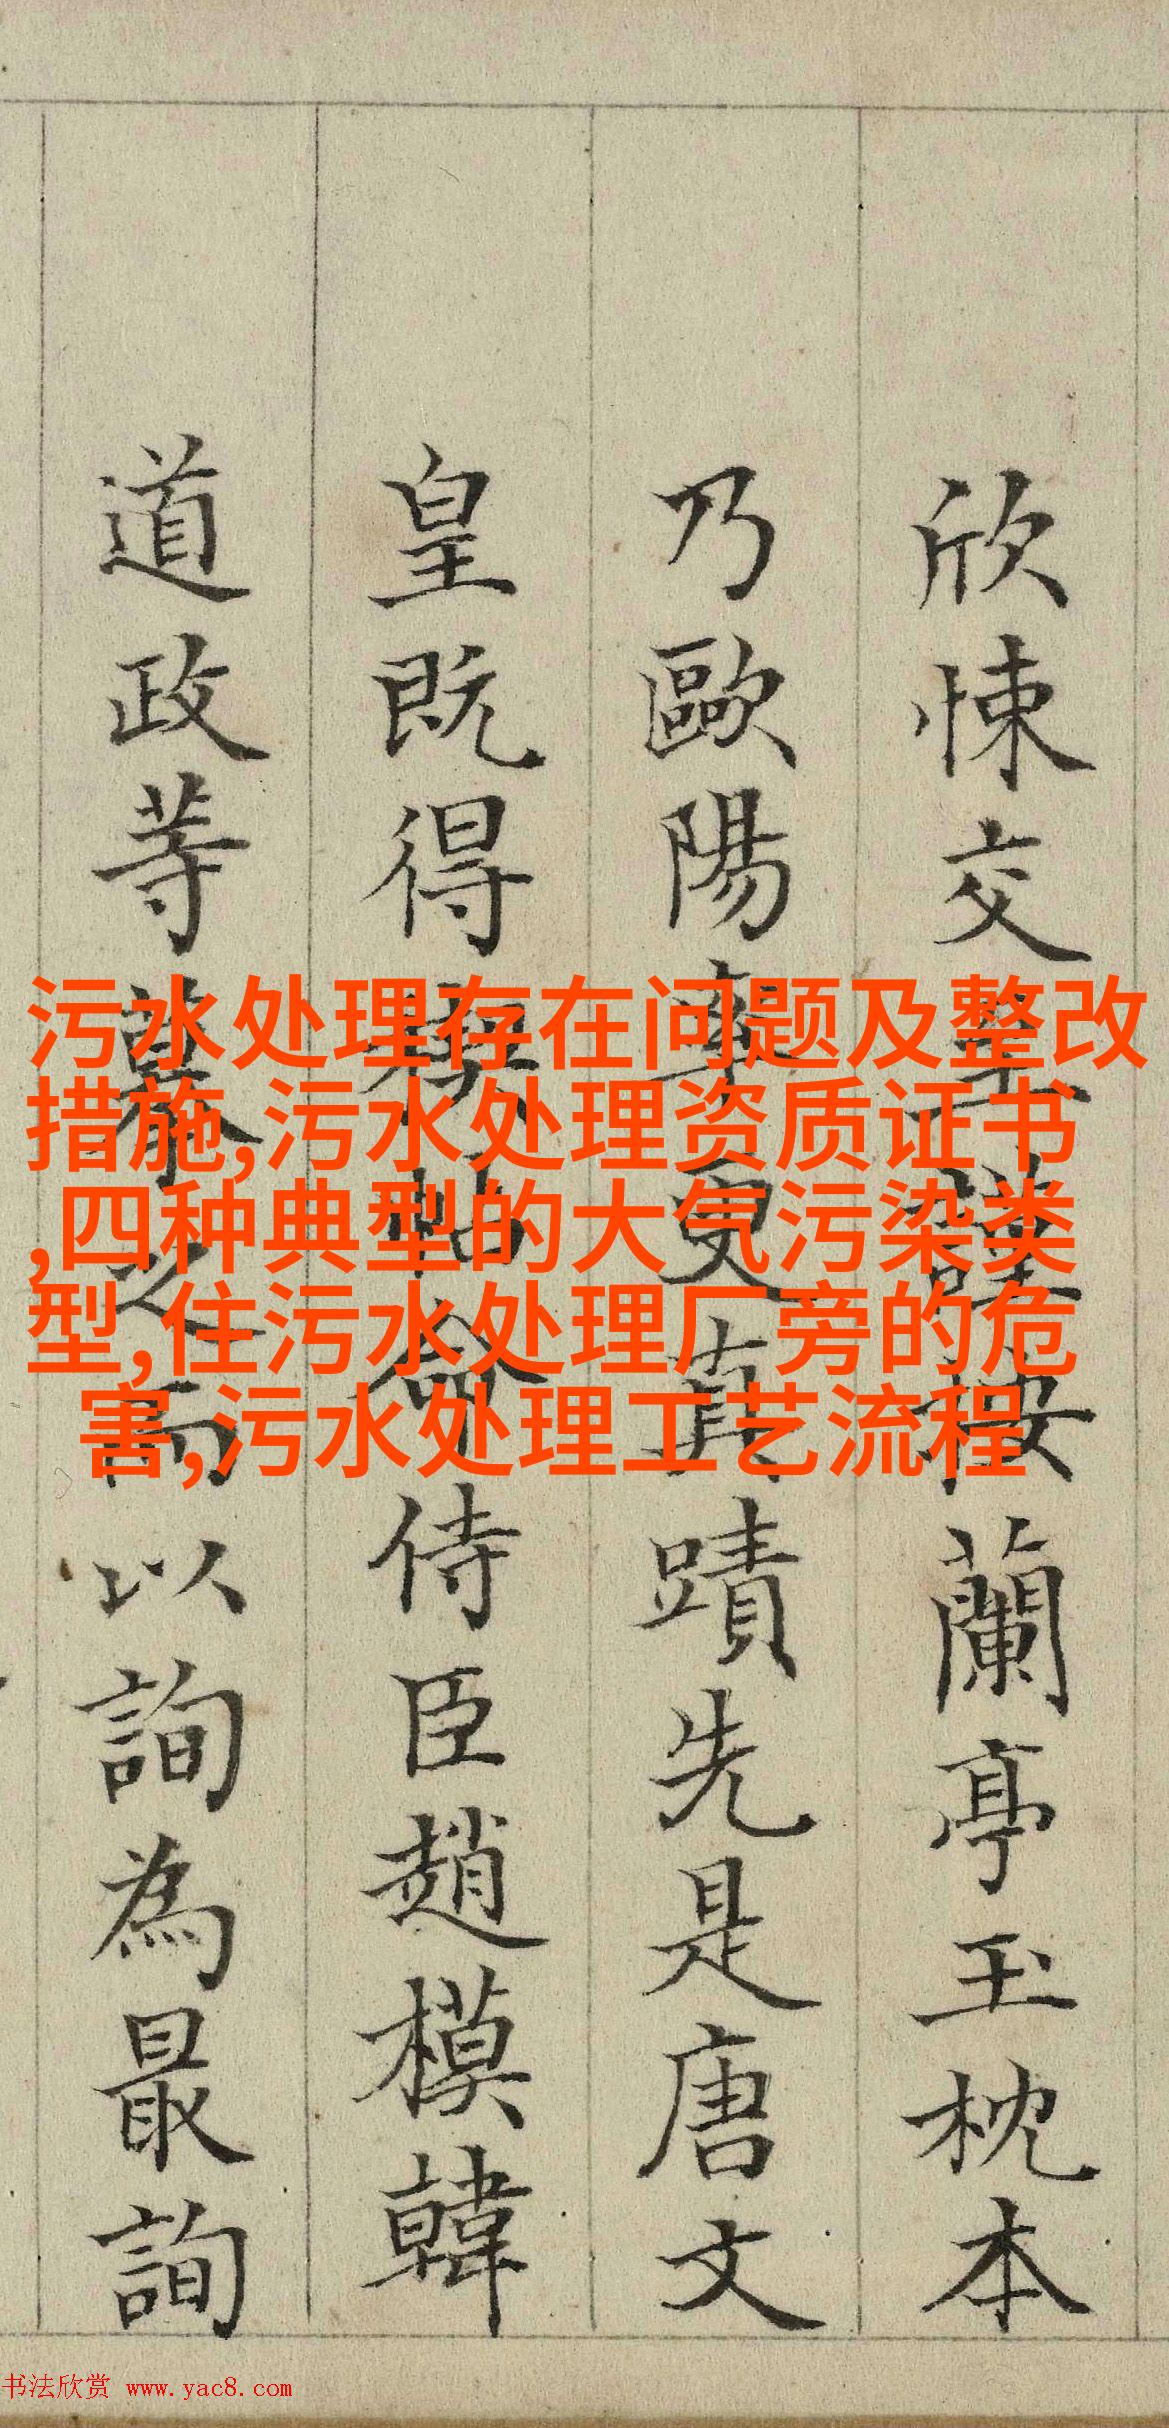 欣悚交至謹按蘭亭玉枕本
乃歐陽率更真蹟先是唐文
皇既得禊帖命侍臣趙模韓
道政等摹之而以詢為最詢
污水处理存在问题及整改
措施,污水处理资质证书
,四种典型的大气污染类
型,住污水处理厂旁的危
害,污水处理工艺流程
书法欣赏 www.yac8.com